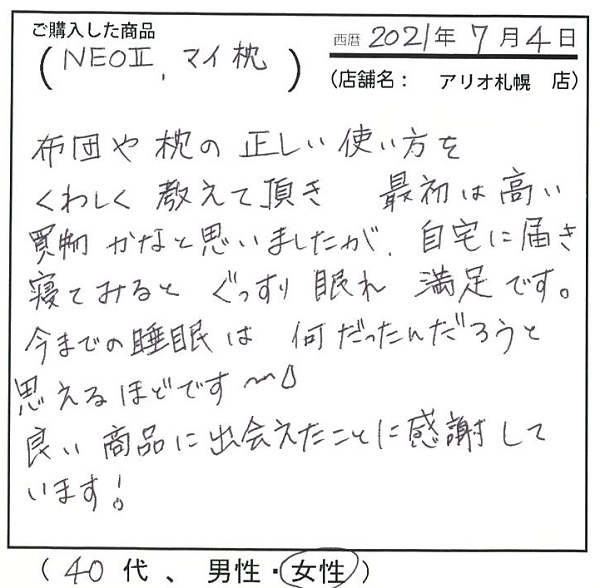 ご購入した商品
(NEOⅡ, マイ枕)
西暦 2021年 7月4日
(店舗名: アリオ札幌 店)
布団や枕の正しい使い方を
くわしく教えて頂き 最初は高い
買物かなと思いましたが、自宅に届き
寝てみると ぐっすり眠れ 満足です。
今までの睡眠は 何だったんだろうと
思えるほどです〜♪
良い商品に出会えたことに感謝して
います!
(40代、男性・女性)